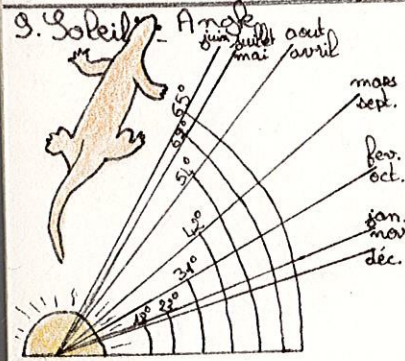 9. Soleil: Angle
juin juillet août
mai avril
mars
sept.
fev.
oct.
jan.
nov
déc.
65°
62°
54°
42°
31°
23°
18°